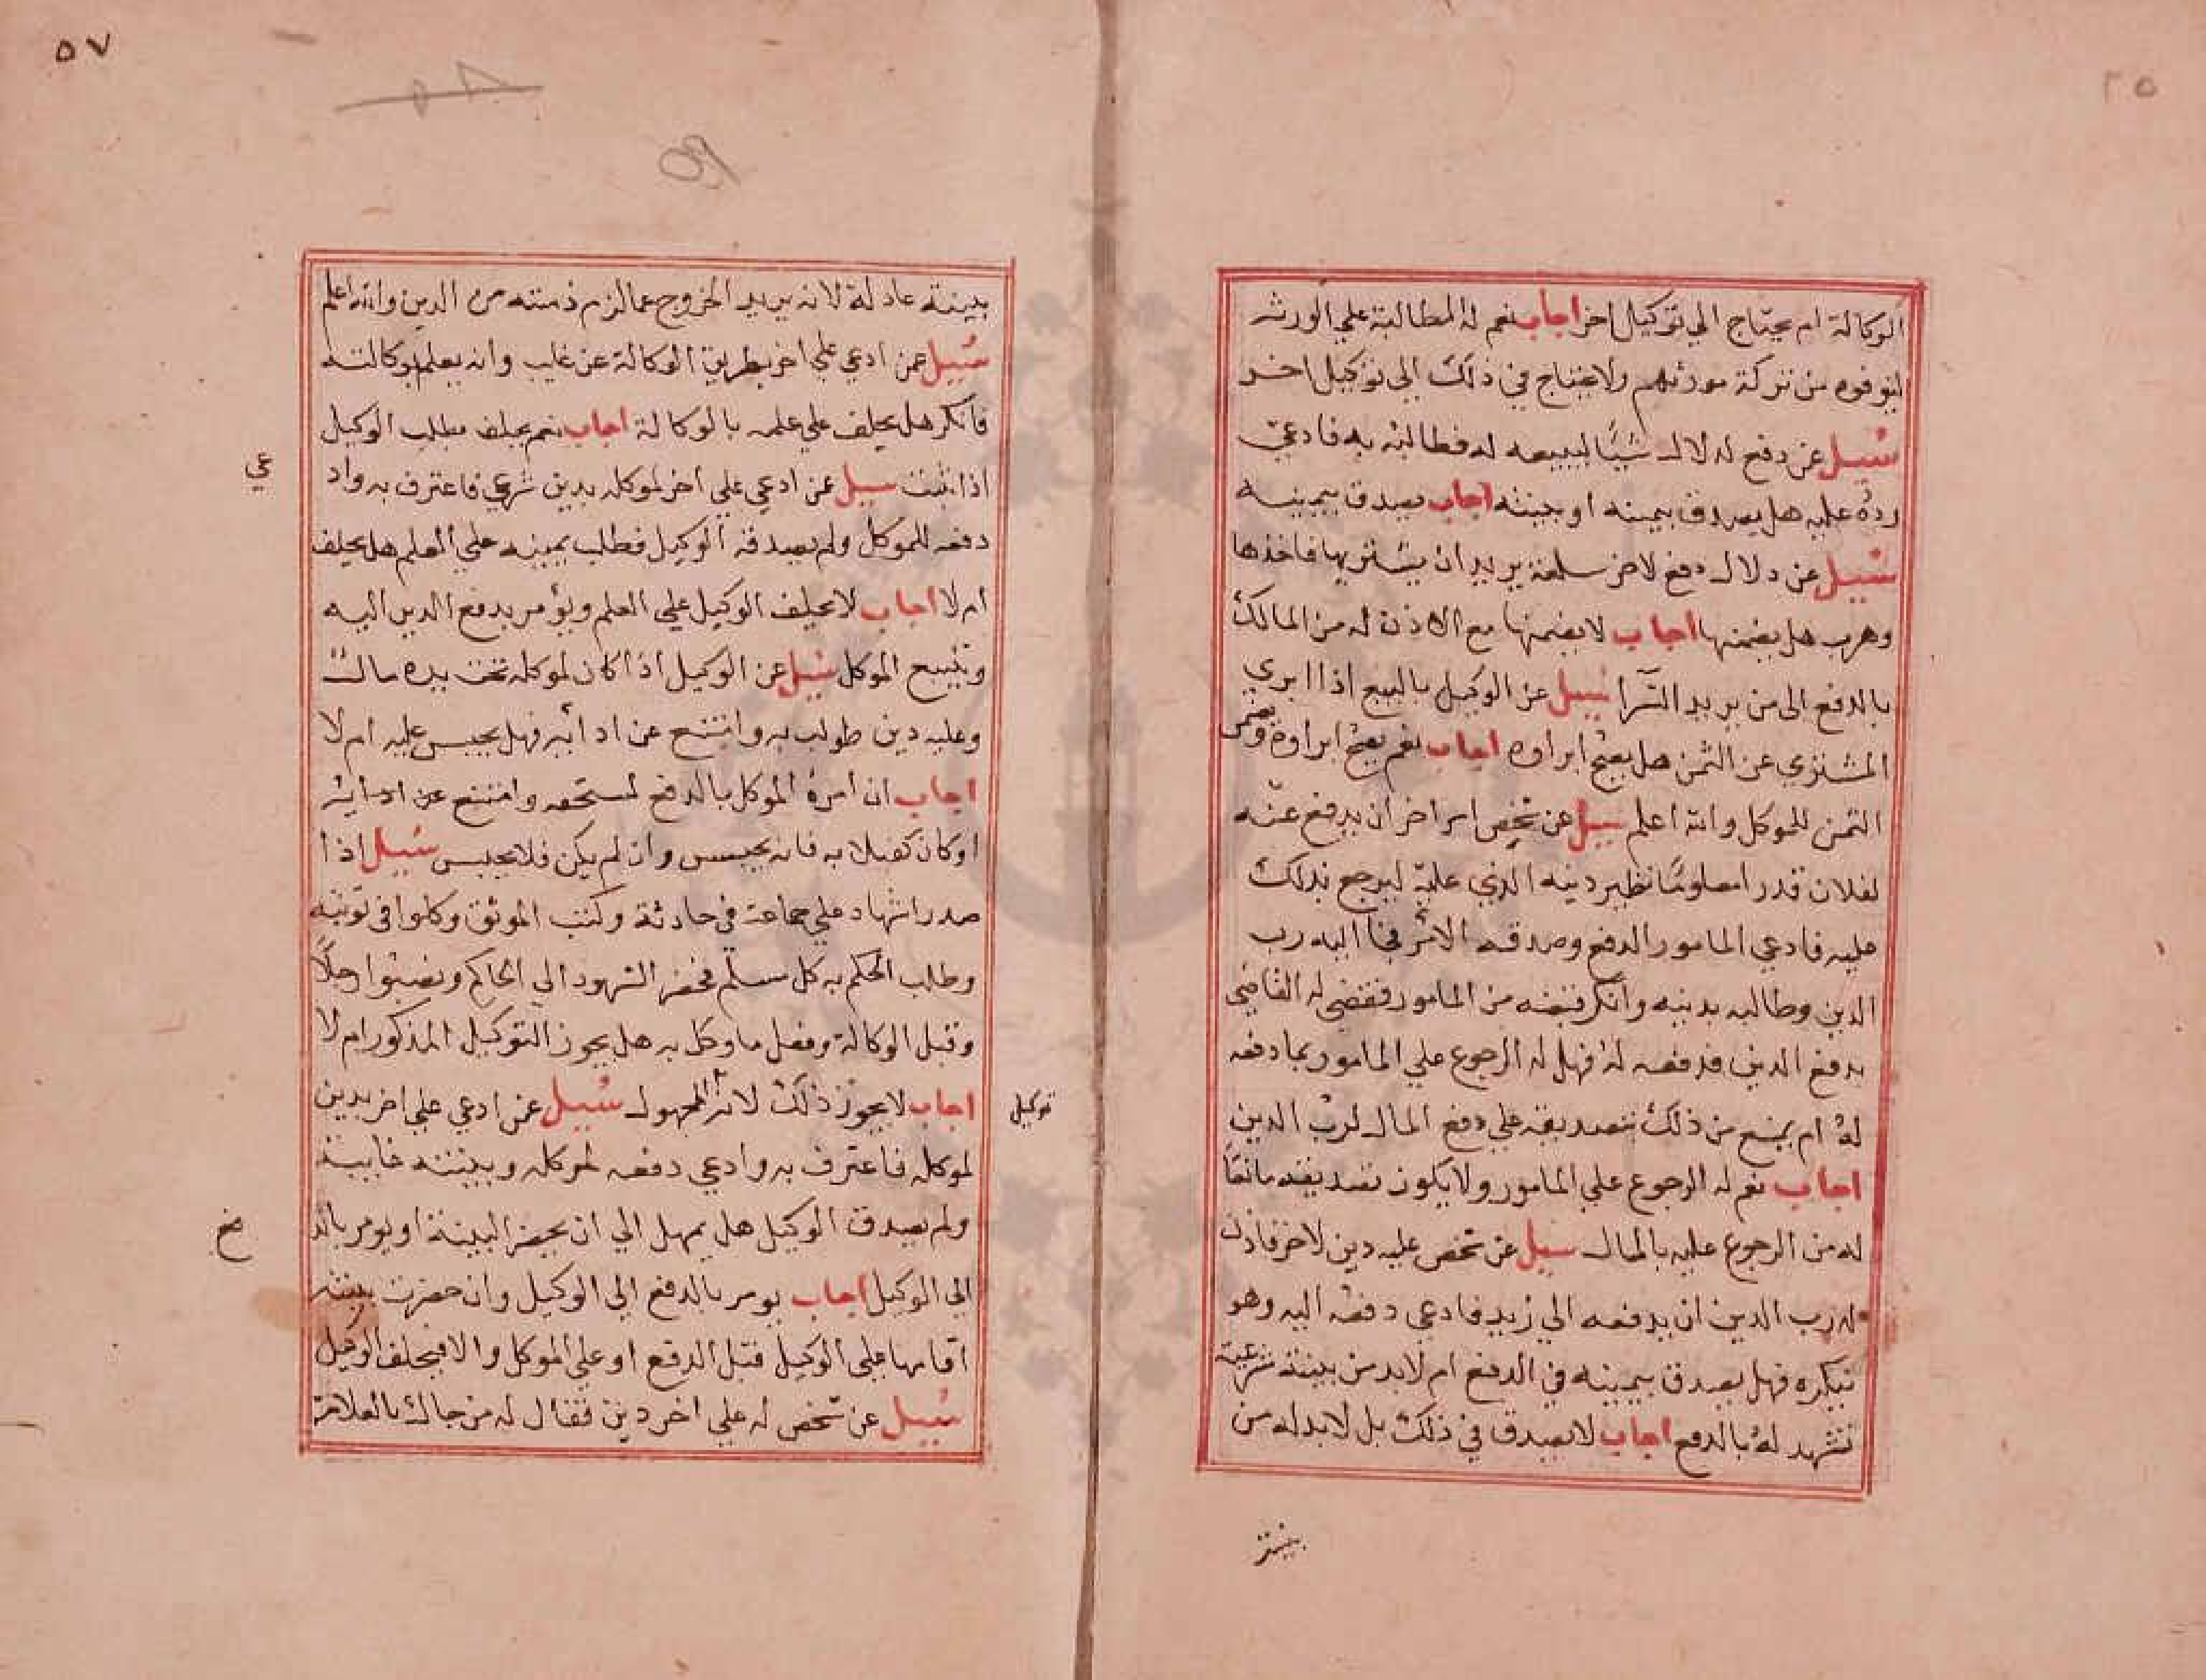 ٢٥
الوكالة ام يحتاج الي توكيل اخر اجاب نعم له المطالبة علي الورثه
ليوفوه من تركة مورثهم ولا يحتاج في ذلك الي توكيل اخر
سيل عن دفع لدلال شيًا ليبيعه له فطالبه به فادعي
رده عليه هل يصدق بيمينه او ببينته اجاب يصدق بيمينه
سيل عن دلال دفع لاخر سلعة يريد ان يشتريها فاخذها
وهرب هل يضمنها اجاب لا يضمنها مع الاذن له من المالك
بالدفع الى من يريد الشرا سيل عن الوكيل بالبيع اذا ابري
المشتري عن الثمن هل يصح ابراوه اجاب نعم يصح ابراوه ويضمن
الثمن للموكل والله اعلم سيل عن شخص امر اخر ان يدفع عنه
لفلان قدرا معلومًا نظير دينه الذي عليه ليرجع بذلك
عليه فادعي المامور الدفع وصدقه الامر فجا اليه رب
الدين وطالبه بدينه وانكر قبضه من المامور فقضي له القاضي
بدفع الدين فدفعه له فهل له الرجوع علي المامور بما دفعه
له ام يمنع من ذلك تصديقه علي دفع المال لرب الدين
اجاب نعم له الرجوع علي المامور ولا يكون تصديقه مانعًا
له من الرجوع عليه بالمال سيل عن شخص عليه دين لاخر فاذن
له رب الدين ان يدفعه الي زيد فادعي دفعه اليه وهو
ينكره فهل يصدق بيمينه في الدفع ام لابد من بينة شرعية
تشهد له بالدفع اجاب لا يصدق في ذلك بل لابد له من
بينة
٥٧
بينة عادلة لانه يريد الخروج عما لزم ذمته من الدين والله اعلم
سيل عن ادعي علي اخر بطريق الوكالة عن غايب وانه يعلم بوكالته
فانكر هل يحلف علي علمه بالوكالة اجاب نعم يحلف بطلب الوكيل
اذا ثبت سيل عن ادعي علي اخر لموكله بدين شرعي فاعترف به واد
عي
دفعه للموكل ولم يصدقه الوكيل فطلب يمينه علي العلم هل يحلف
ام لا اجاب لا يحلف الوكيل علي العلم ويؤمر بدفع الدين اليه
ويتبع الموكل سيل عن الوكيل اذا كان لموكله تحت يده مال
وعليه دين طولب به وامتنع عن ادائه فهل يحبس عليه ام لا
اجاب ان امره الموكل بالدفع لمستحقه وامتنع عن ادايه
او كان كفيلا به فانه يحبس وان لم يكن فلا يحبس سيل اذا
صدر اشهاد علي جماعة في حادثة وكتب الموثق وكلوا في ثبوته
وطلب الحكم به كل مسلم فحضر الشهود الي الحاكم ونصبوا رجلًا
وقبل الوكالة وفعل ما وكل به هل يجوز التوكيل المذكور ام لا
اجاب لا يجوز ذلك لانه المجهول سيل عن ادعي علي اخر بدين
توكيل
لموكله فاعترف به وادعي دفعه لموكله وبينته غايبة
ولم يصدق الوكيل هل يمهل الي ان يحضر البينة او يومر بالد
فع
الي الوكيل اجاب يومر بالدفع الي الوكيل وان حضرت بينته
اقامها علي الوكيل قبل الدفع او علي الموكل والا فيحلف الوكيل
سيل عن شخص له علي اخر دين فقال له من جاك بالعلامة